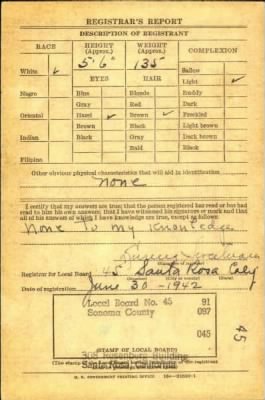 REGISTRAR'S REPORT
DESCRIPTION OF REGISTRANT
RACE HEIGHT (Approx.) WEIGHT (Approx.) COMPLEXION
5' 6" 135
White ✓ Sallow
EYES HAIR Light ✓
Negro Blue Blonde Ruddy
Gray Red Dark
Oriental Hazel ✓ Brown ✓ Freckled
Brown Black Light brown
Indian Black Gray Dark brown
Bald Black
Filipino
Other obvious physical characteristics that will aid in identification
None
I certify that my answers are true; that the person registered has read or has had
read to him his own answers; that I have witnessed his signature or mark and that
all of his answers of which I have knowledge are true, except as follows:
None To my Knowledge
Registrar for Local Board 45 Santa Rosa Calif
(City or county)
Date of registration June 30 - 1942
Local Board No. 45 91
Sonoma County 097
045
45
(STAMP OF LOCAL BOARD)
308 Rosenburg Building
Santa Rosa, California
U. S. GOVERNMENT PRINTING OFFICE